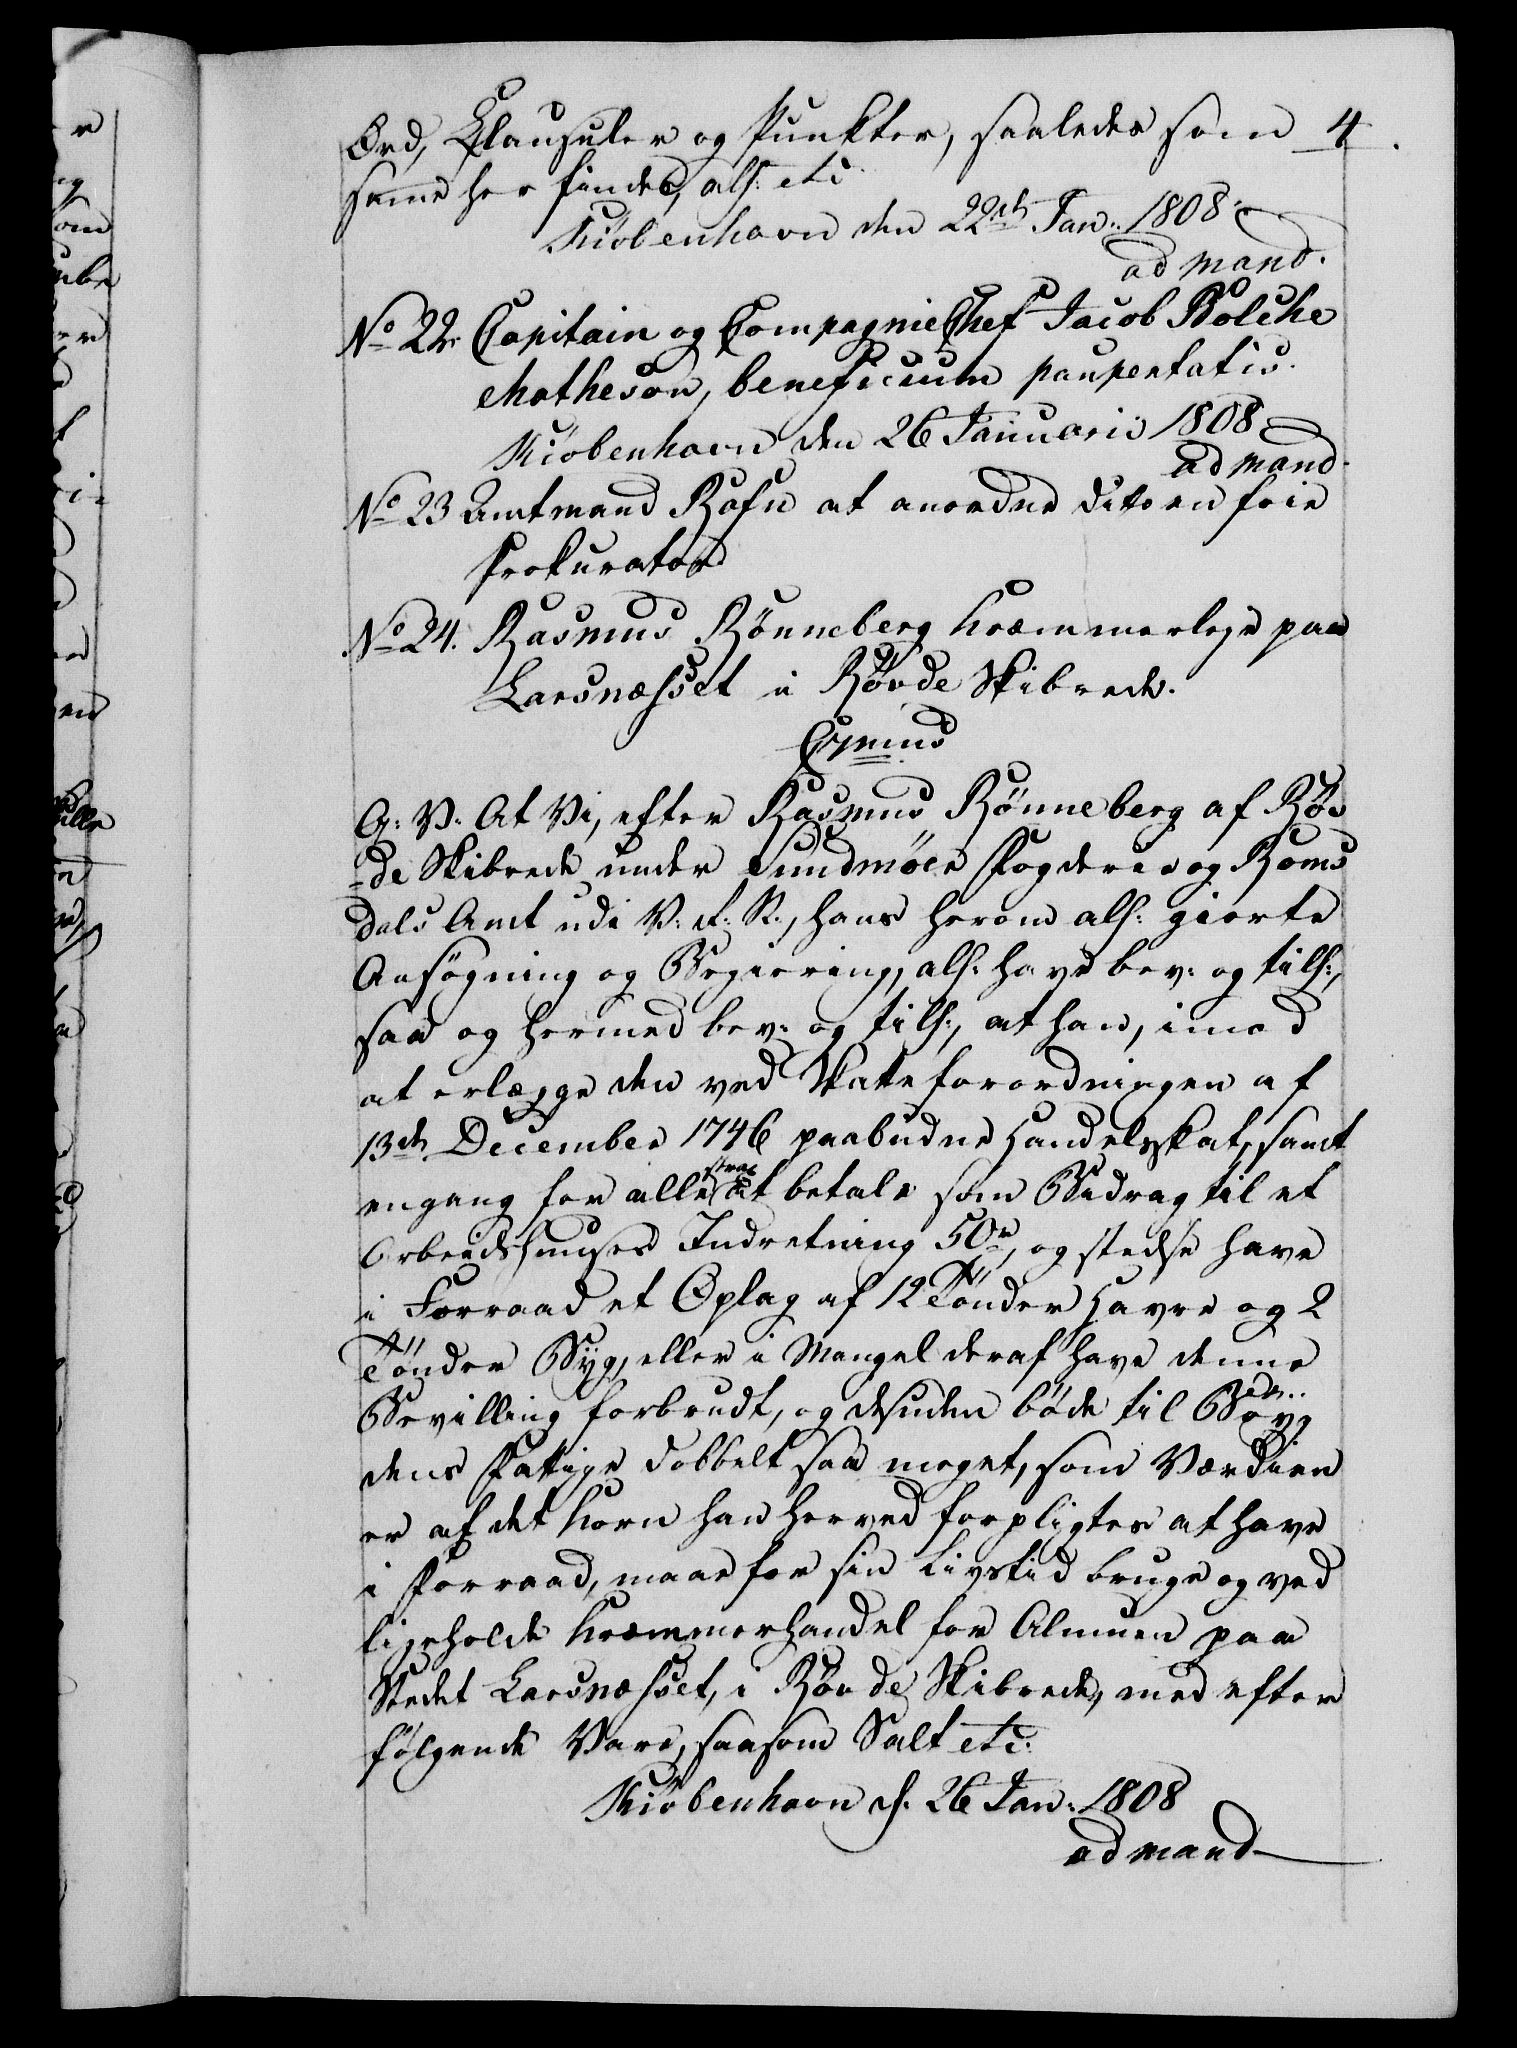 Ord, Clausuler og Punkter, saaledes som 4.
samme her findes, als: etc
Kiøbenhavn den 22de Jan: 1808.
ad mand.
No 22. Capitain og CompagnieChef Jacob Bolche
Matheson, beneficium paupertatis.
Kiøbenhavn den 26 Januarii 1808
ad mand.
No 23 Amtmand Rafn at anordne dito en frie
Prokurator
No 24. Rasmus Rønneberg Kræmmerleje paa
Larsnæsset i Røvde Skibrede.
G: V. At Vi, efter Rasmus Rønneberg af Røv
-de Skibrede under Sundmøers Fogderie og Roms
dals Amt udi V: R: N:, hans herom als: giorte
Ansøgning og Begiering, als: have bev: og tils:,
saa og hermed bev: og tils:, at han, imod
at erlægge den ved Skatteforordningen af
13de December 1746 paabudne Handelsskat, samt
engang for alle strax at betale som Bidrag til et
Arbeidshuuses Indretning 50 rd, og stedse have
i Forraad et Oplag af 12 Tønder Havre og 2
Tønder Byg, eller i Mangel deraf have denne
Bevilling forbrudt, og desuden bøde til Bøyg
dens Fattige dobbelt saa meget, som Værdien
er af det Korn han herved forpligtes at have
i Forraad, maae for sin Livstid bruge og ved
ligeholde Kræmmerhandel for Almuen paa
Stedet Larsnæsset, i Røvde Skibrede, med efter
følgende Vare, saasom Salt etc:
Kiøbenhavn d. 26 Jan: 1808
ad mand